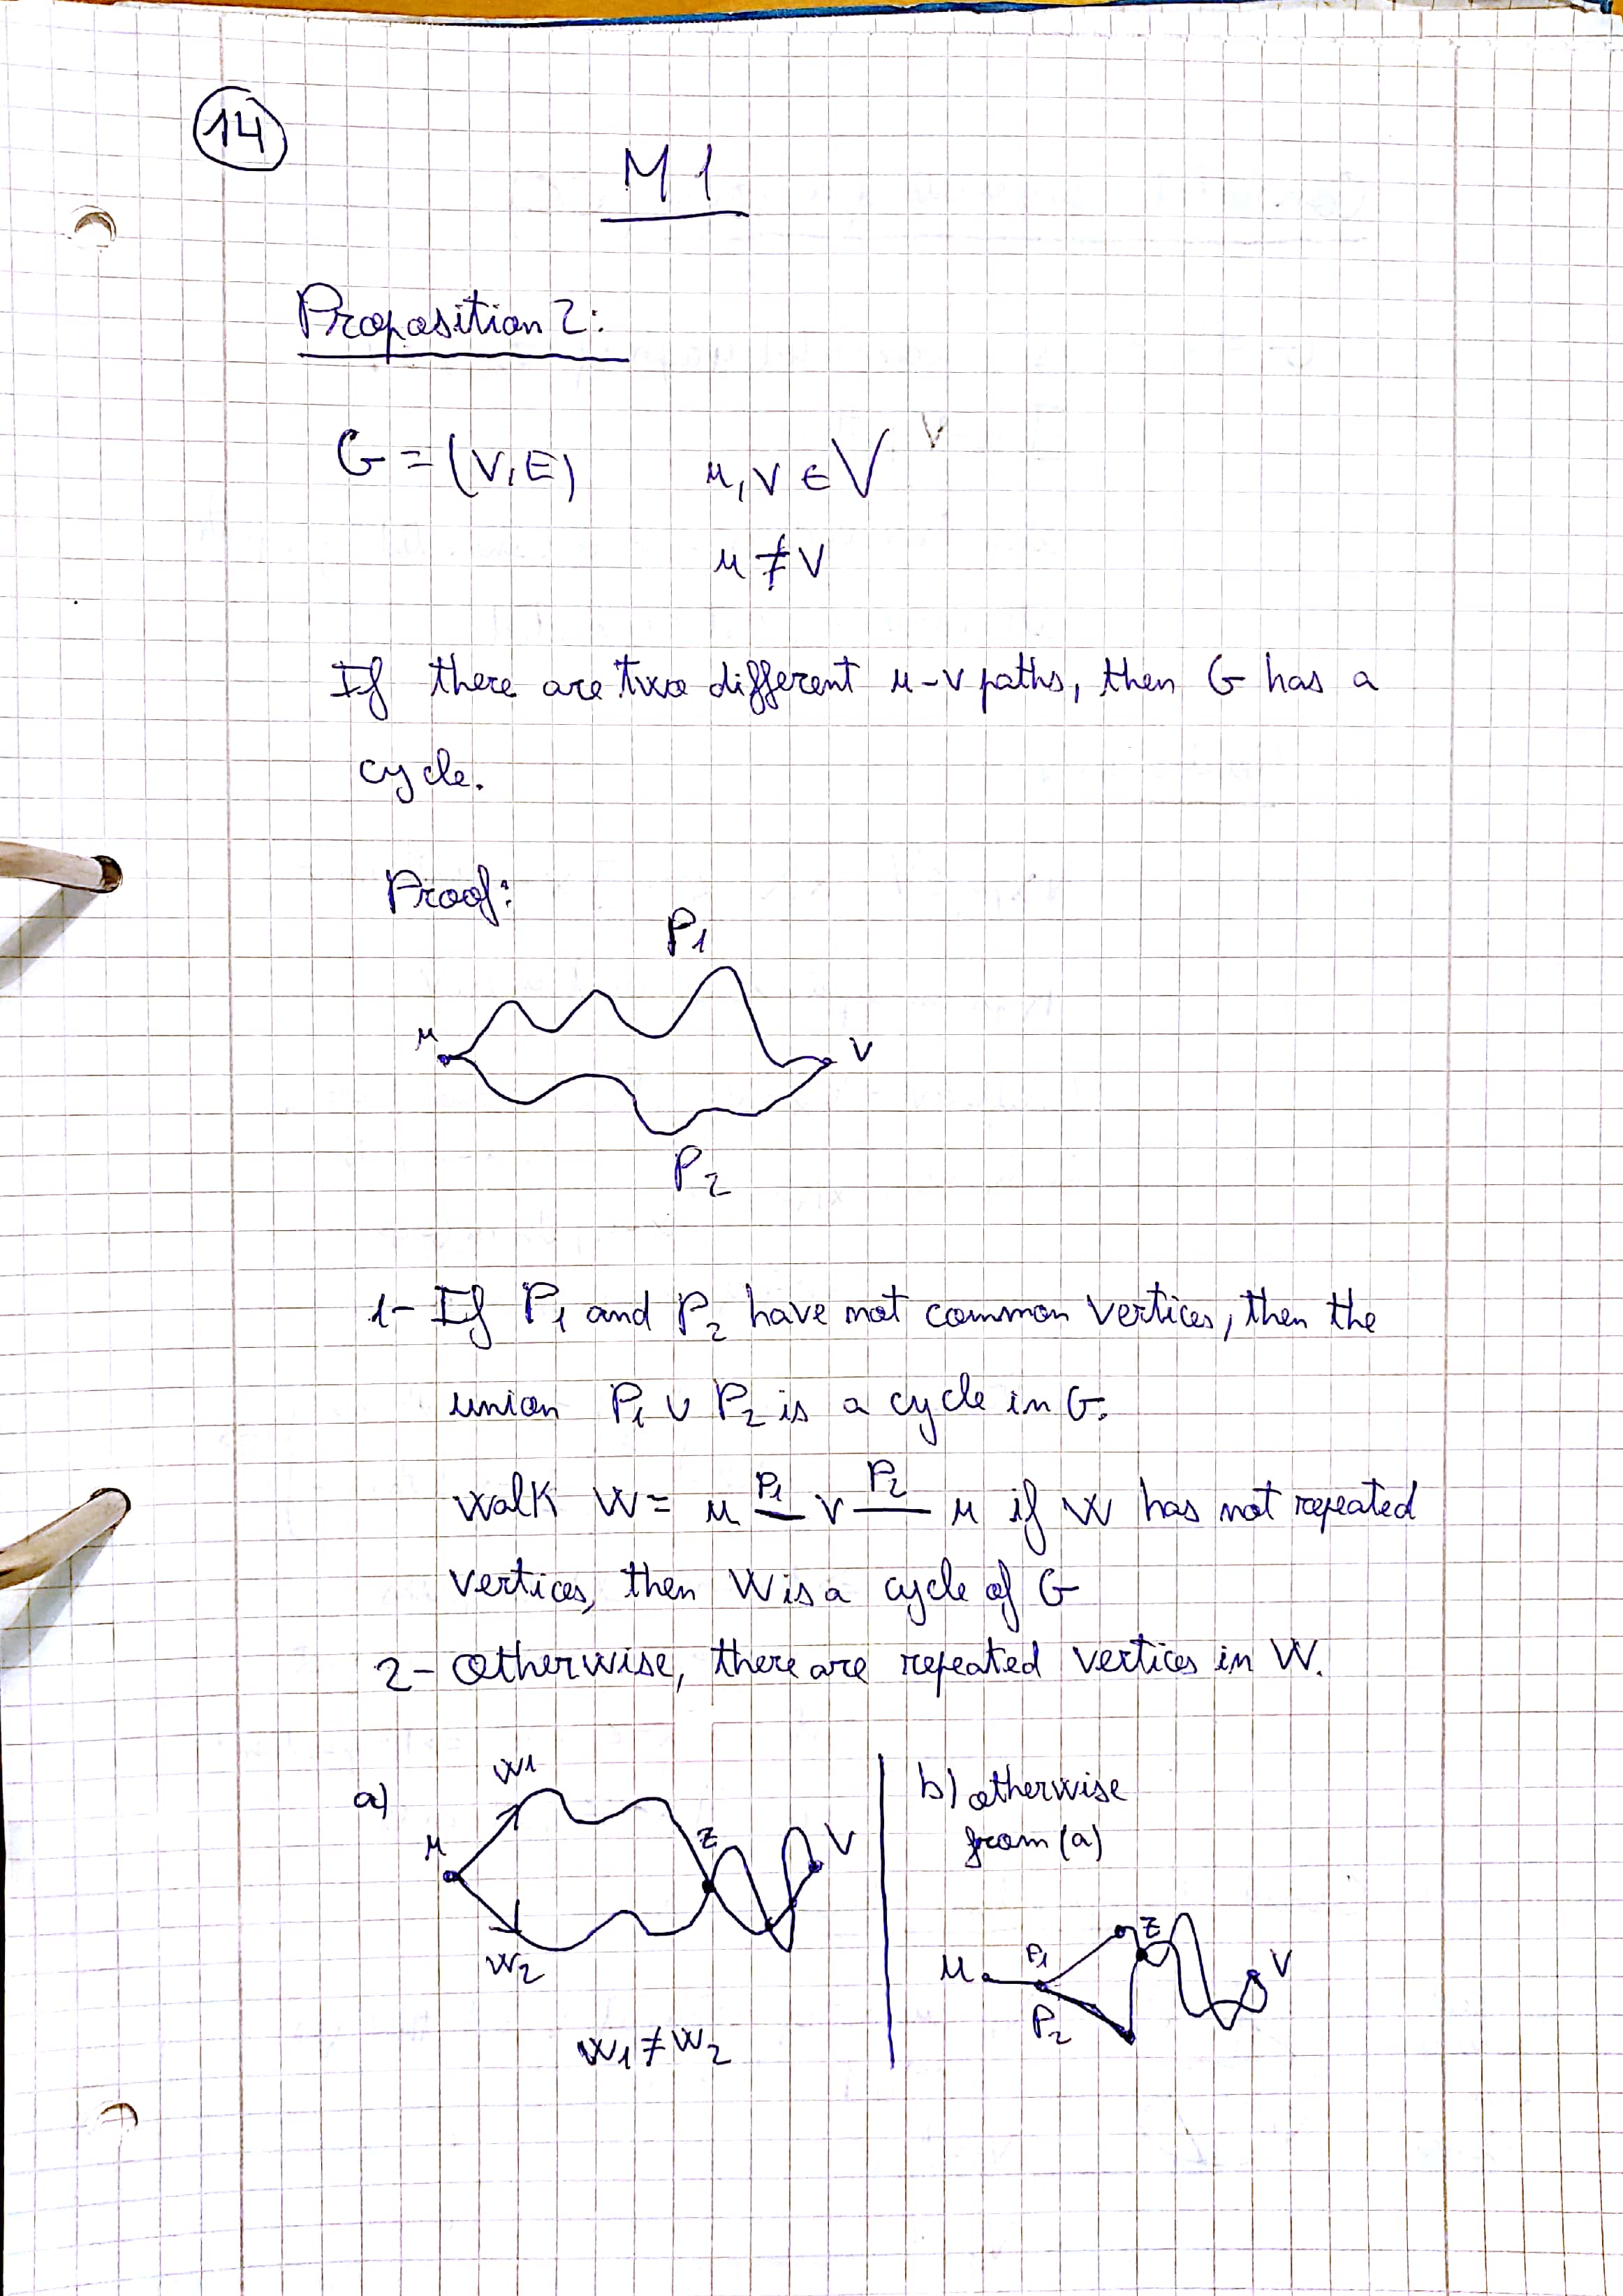 14
M1
Proposition 2:
G = (V, E) u, v ∈ V
u ≠ v
If there are two different u-v paths, then G has a
cycle.
Proof:
P1
u v
P2
1- If P1 and P2 have not common vertices, then the
union P1 ∪ P2 is a cycle in G.
Walk W = u P1 v P2 u if W has not repeated
vertices, then W is a cycle of G
2- Otherwise, there are repeated vertices in W.
a) W1
u z v
W2
W1 ≠ W2
b) otherwise
from (a)
u P1 z v
P2